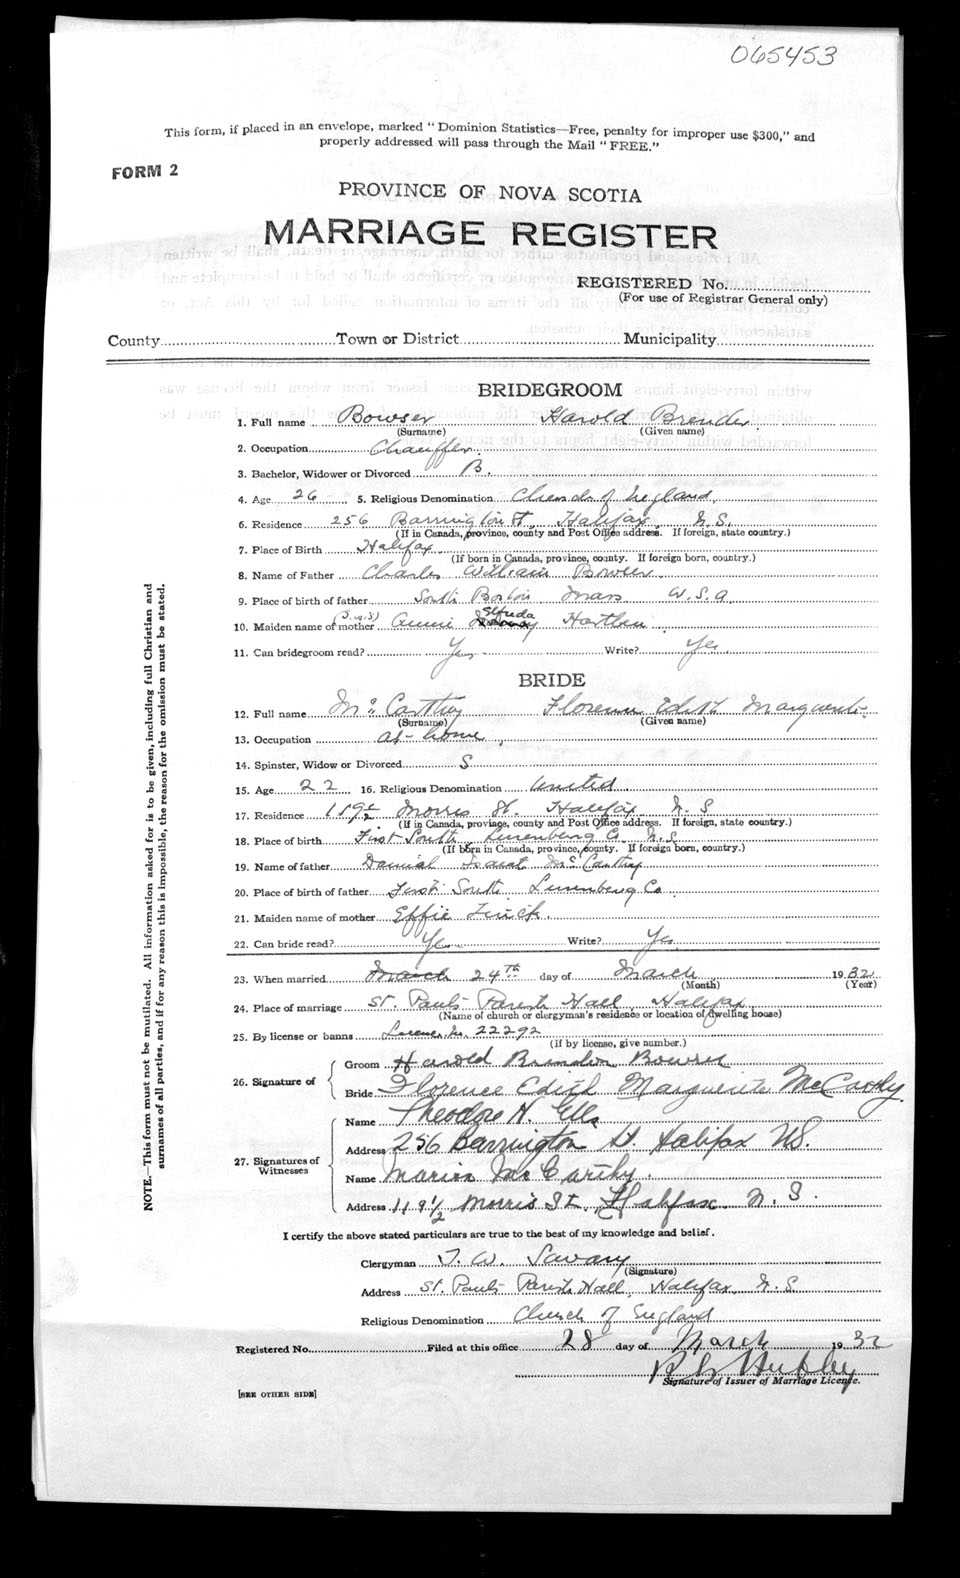 065453
This form, if placed in an envelope, marked "Dominion Statistics—Free, penalty for improper use $300," and
properly addressed will pass through the Mail "FREE."
FORM 2
PROVINCE OF NOVA SCOTIA
MARRIAGE REGISTER
REGISTERED No.
(For use of Registrar General only)
County Town or District Municipality
BRIDEGROOM
1. Full name Bowser Harold
(Surname) (Given name)
2. Occupation Chauffer.
3. Bachelor, Widower or Divorced B.
4. Age 26 5. Religious Denomination Church of England
6. Residence 256 Barrington St. Halifax, N.S.
(If in Canada, province, county and Post Office address. If foreign, state country.)
7. Place of Birth Halifax
(If born in Canada, province, county. If foreign born, country.)
8. Name of Father Charles William Bowser
9. Place of birth of father South Boston Mass U.S.A
10. Maiden name of mother Annie
11. Can bridegroom read? Yes Write? Yes
BRIDE
12. Full name McCarthy Florence Edith Marguerite
(Surname) (Given name)
13. Occupation at-home,
14. Spinster, Widow or Divorced S
15. Age 22 16. Religious Denomination United
17. Residence 119½ Morris St. Halifax N.S
(If in Canada, province, county and Post Office address. If foreign, state country.)
18. Place of birth First South Lunenburg Co N.S
(If born in Canada, province, county. If foreign born, country.)
19. Name of father Daniel McCarthy
20. Place of birth of father First South Lunenburg Co
21. Maiden name of mother Effie
22. Can bride read? Yes Write? Yes
23. When married March 24th day of March 1932
(Month) (Year)
24. Place of marriage St. Pauls Parish Hall Halifax
(Name of church or clergyman's residence or location of dwelling house)
25. By license or banns License No. 22292
(If by license, give number.)
26. Signature of
Groom Harold Brendon Bowser
Bride Florence Edith Marguerite McCarthy.
27. Signatures of Witnesses
Name Theodore N. Ells
Address 256 Barrington St. Halifax N.S.
Name Marion McCarthy.
Address 119½ Morris St. Halifax N.S.
I certify the above stated particulars are true to the best of my knowledge and belief.
Clergyman T. W. Savary
(Signature)
Address St. Pauls Parish Hall, Halifax N.S
Religious Denomination Church of England
Registered No. Filed at this office 28 day of March 1932
Signature of Issuer of Marriage Licence.
[SEE OTHER SIDE]
NOTE.—This form must not be mutilated. All information asked for is to be given, including full Christian and
surnames of all parties, and if for any reason this is impossible, the reason for the omission must be stated.